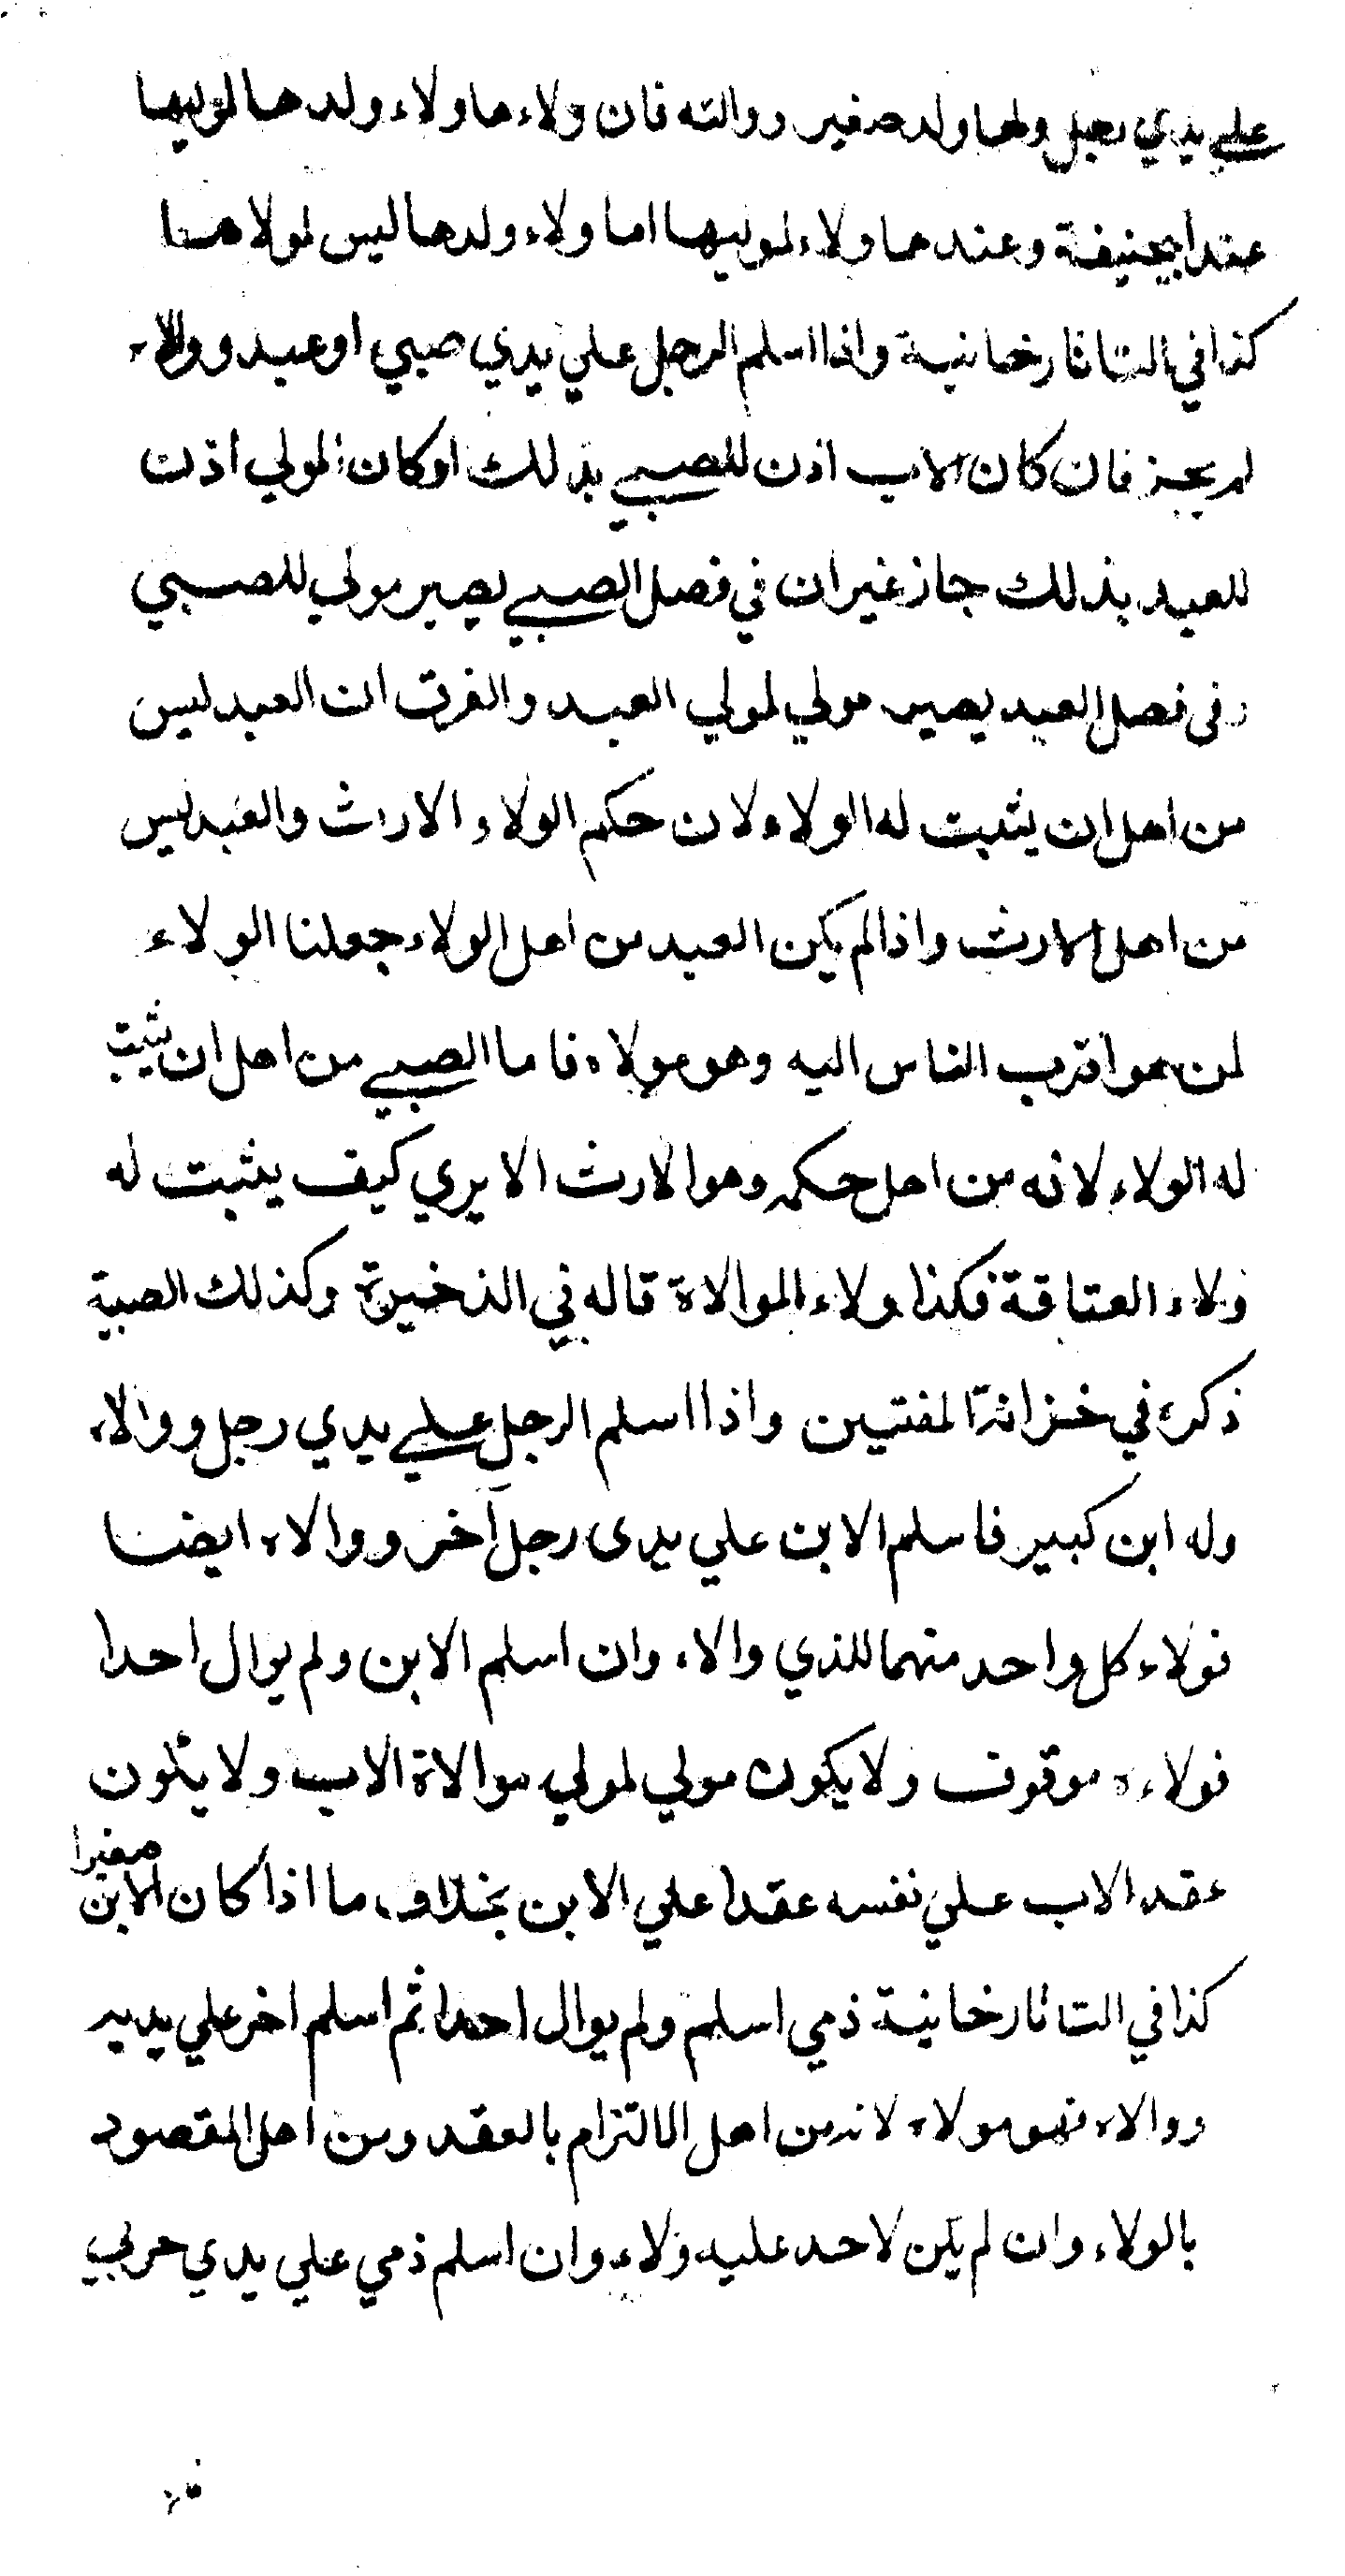 علي يدي رجل ولها ولد صغير ووالته فان ولاءها وولاء ولدها لموليها
عند ابيحنيفة وعندهما ولاء لموليها اما ولاء ولدها ليس لمولاها
كذا في التاتارخانية واذا اسلم الرجل علي يدي صبي او عبد ووالاه
لم يجز فان كان الاب اذن للصبي بذلك او كان المولي اذن
للعبد بذلك جاز غير ان في فصل الصبي يصير مولي للصبي
وفي فصل العبد يصير مولي لمولي العبد والفرق ان العبد ليس
من اهل ان يثبت له الولاء لان حكم الولاء الاراث والعبد ليس
من اهل الارث واذا لم يكن العبد من اهل الولاء جعلنا الولاء
لمن هو اقرب الناس اليه وهو مولاه فاما الصبي من اهل ان يثبت
له الولاء لانه من اهل حكمه وهو الارث الا يري كيف يثبت له
ولاء العتاقة فكذا ولاء الموالاة قاله في الذخيرة وكذلك الصبية
ذكره في خزانة المفتين واذا اسلم الرجل علي يدي رجل ووالاه
وله ابن كبير فاسلم الابن علي يدي رجل آخر ووالاه ايضا
فولاء كل واحد منهما للذي والاه وان اسلم الابن ولم يوال احدا
فولاءه موقوف ولا يكون مولي لمولي موالاة الاب ولا يكون
عقد الاب علي نفسه عقدا علي الابن بخلاف ما اذا كان الابن صغيرا
كذا في التاتارخانية ذمي اسلم ولم يوال احدا ثم اسلم اخر علي يديه
ووالاه فهو مولاه لانه من اهل الالتزام بالعقد ومن اهل المقصود
بالولاء وان لم يكن لاحد عليه ولاء وان اسلم ذمي علي يدي حربي